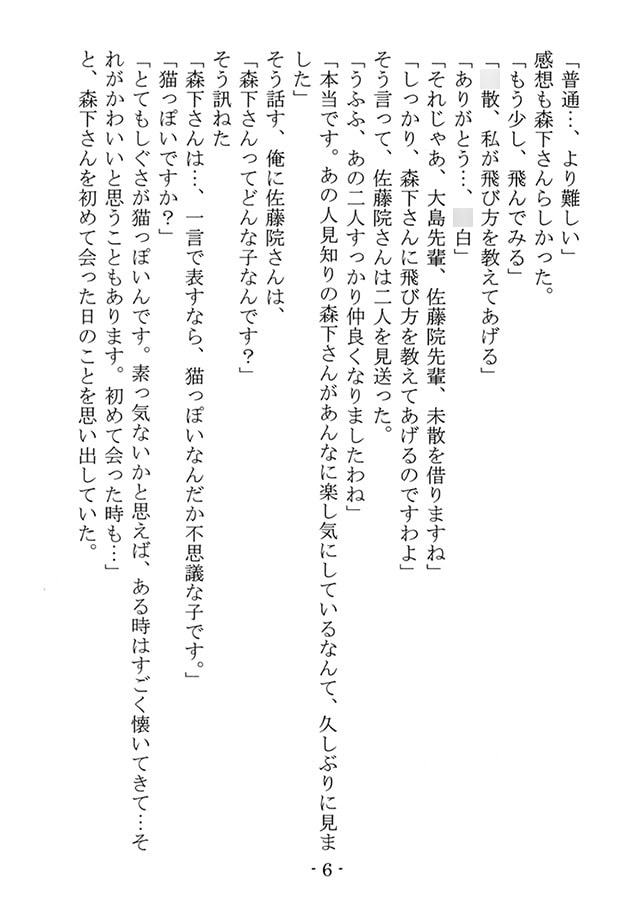 「普通…、より難しい」
感想も森下さんらしかった。
「もう少し、飛んでみる」
「散、私が飛び方を教えてあげる」
「ありがとう…、白」
「それじゃあ、大島先輩、佐藤院先輩、未散を借りますね」
「しっかり、森下さんに飛び方を教えてあげるのですわよ」
そう言って、佐藤院さんは二人を見送った。
「うふふ、あの二人すっかり仲良くなりましたわね」
「本当です。あの人見知りの森下さんがあんなに楽し気にしているなんて、久しぶりに見ま
した」
そう話す、俺に佐藤院さんは、
「森下さんってどんな子なんです？」
そう訊ねた
「森下さんは…、一言で表すなら、猫っぽいなんだか不思議な子です。」
「猫っぽいですか？」
「とてもしぐさが猫っぽいんです。素っ気ないかと思えば、ある時はすごく懐いてきて…そ
れがかわいいと思うこともあります。初めて会った時も…」
と、森下さんを初めて会った日のことを思い出していた。
- 6 -